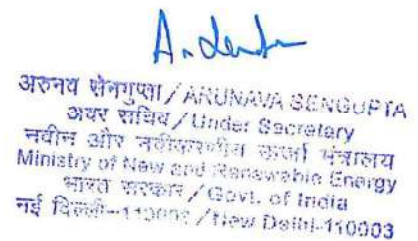 अरुनव सेनगुप्ता / ARUNAVA SENGUPTA
अवर सचिव / Under Secretary
नवीन और नवीकरणीय ऊर्जा मंत्रालय
Ministry of New and Renewable Energy
भारत सरकार / Govt. of India
नई दिल्ली-110003 / New Delhi-110003